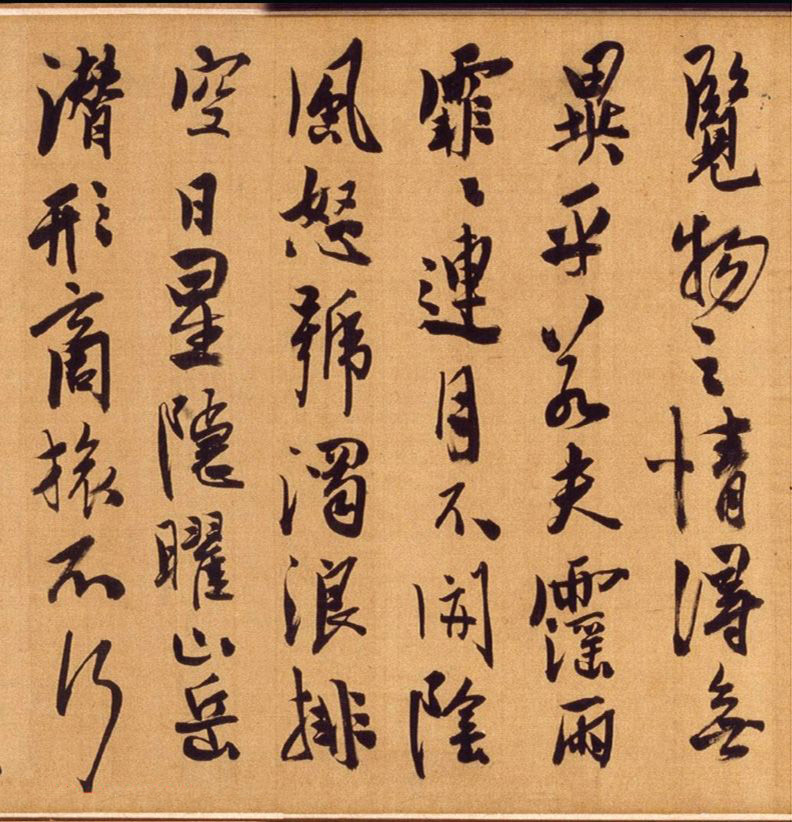 覽物之情得無
異乎若夫霪雨
霏〻連月不開陰
風怒號濁浪排
空日星隱曜山岳
潛形商旅不行